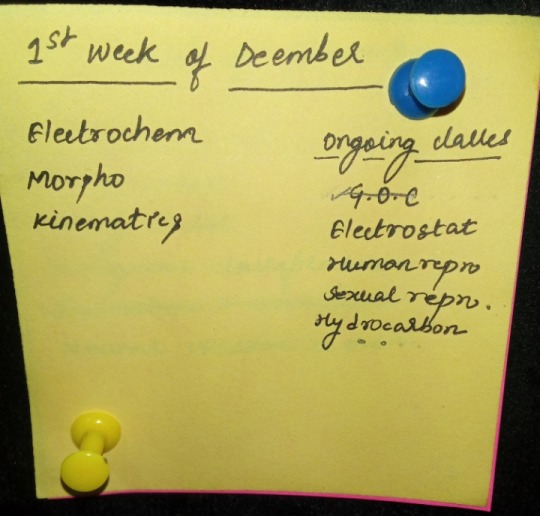 1st week of Deember
Electrochem
Morpho
Kinematics
Ongoing classes
✓G.O.C
Electrostat
Human repro
Sexual repro.
Hydrocarbon